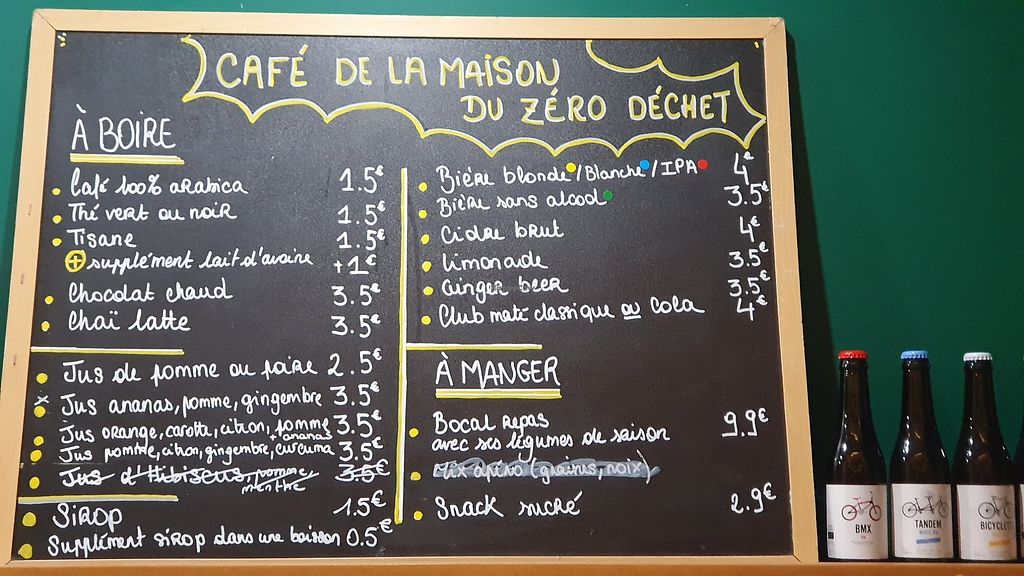 CAFÉ DE LA MAISON
DU ZÉRO DÉCHET
À BOIRE
Café 100% arabica 1.5€
Thé vert ou noir 1.5€
Tisane 1.5€
+ supplément lait d'avoine +1€
Chocolat chaud 3.5€
Chaï latte 3.5€
Jus de pomme ou poire 2.5€
x Jus ananas, pomme, gingembre 3.5€
Jus orange, carotte, citron, pomme 3.5€
+ ananas
Jus pomme, citron, gingembre, curcuma 3.5€
Jus d'Hibiscus, pomme 3.5€
menthe
SIROP 1.5€
Supplément sirop dans une boisson 0.5€
Bière blonde/Blanche/IPA 4€
Bière sans alcool 3.5€
Cidre brut 4€
Limonade 3.5€
Ginger beer 3.5€
Club maté classique ou Cola 4€
À MANGER
Bocal repas 9.9€
avec ses légumes de saison
Mix apéro (graines, noix)
Snack sucré 2.9€
BMX
TANDEM
BICYCLETT